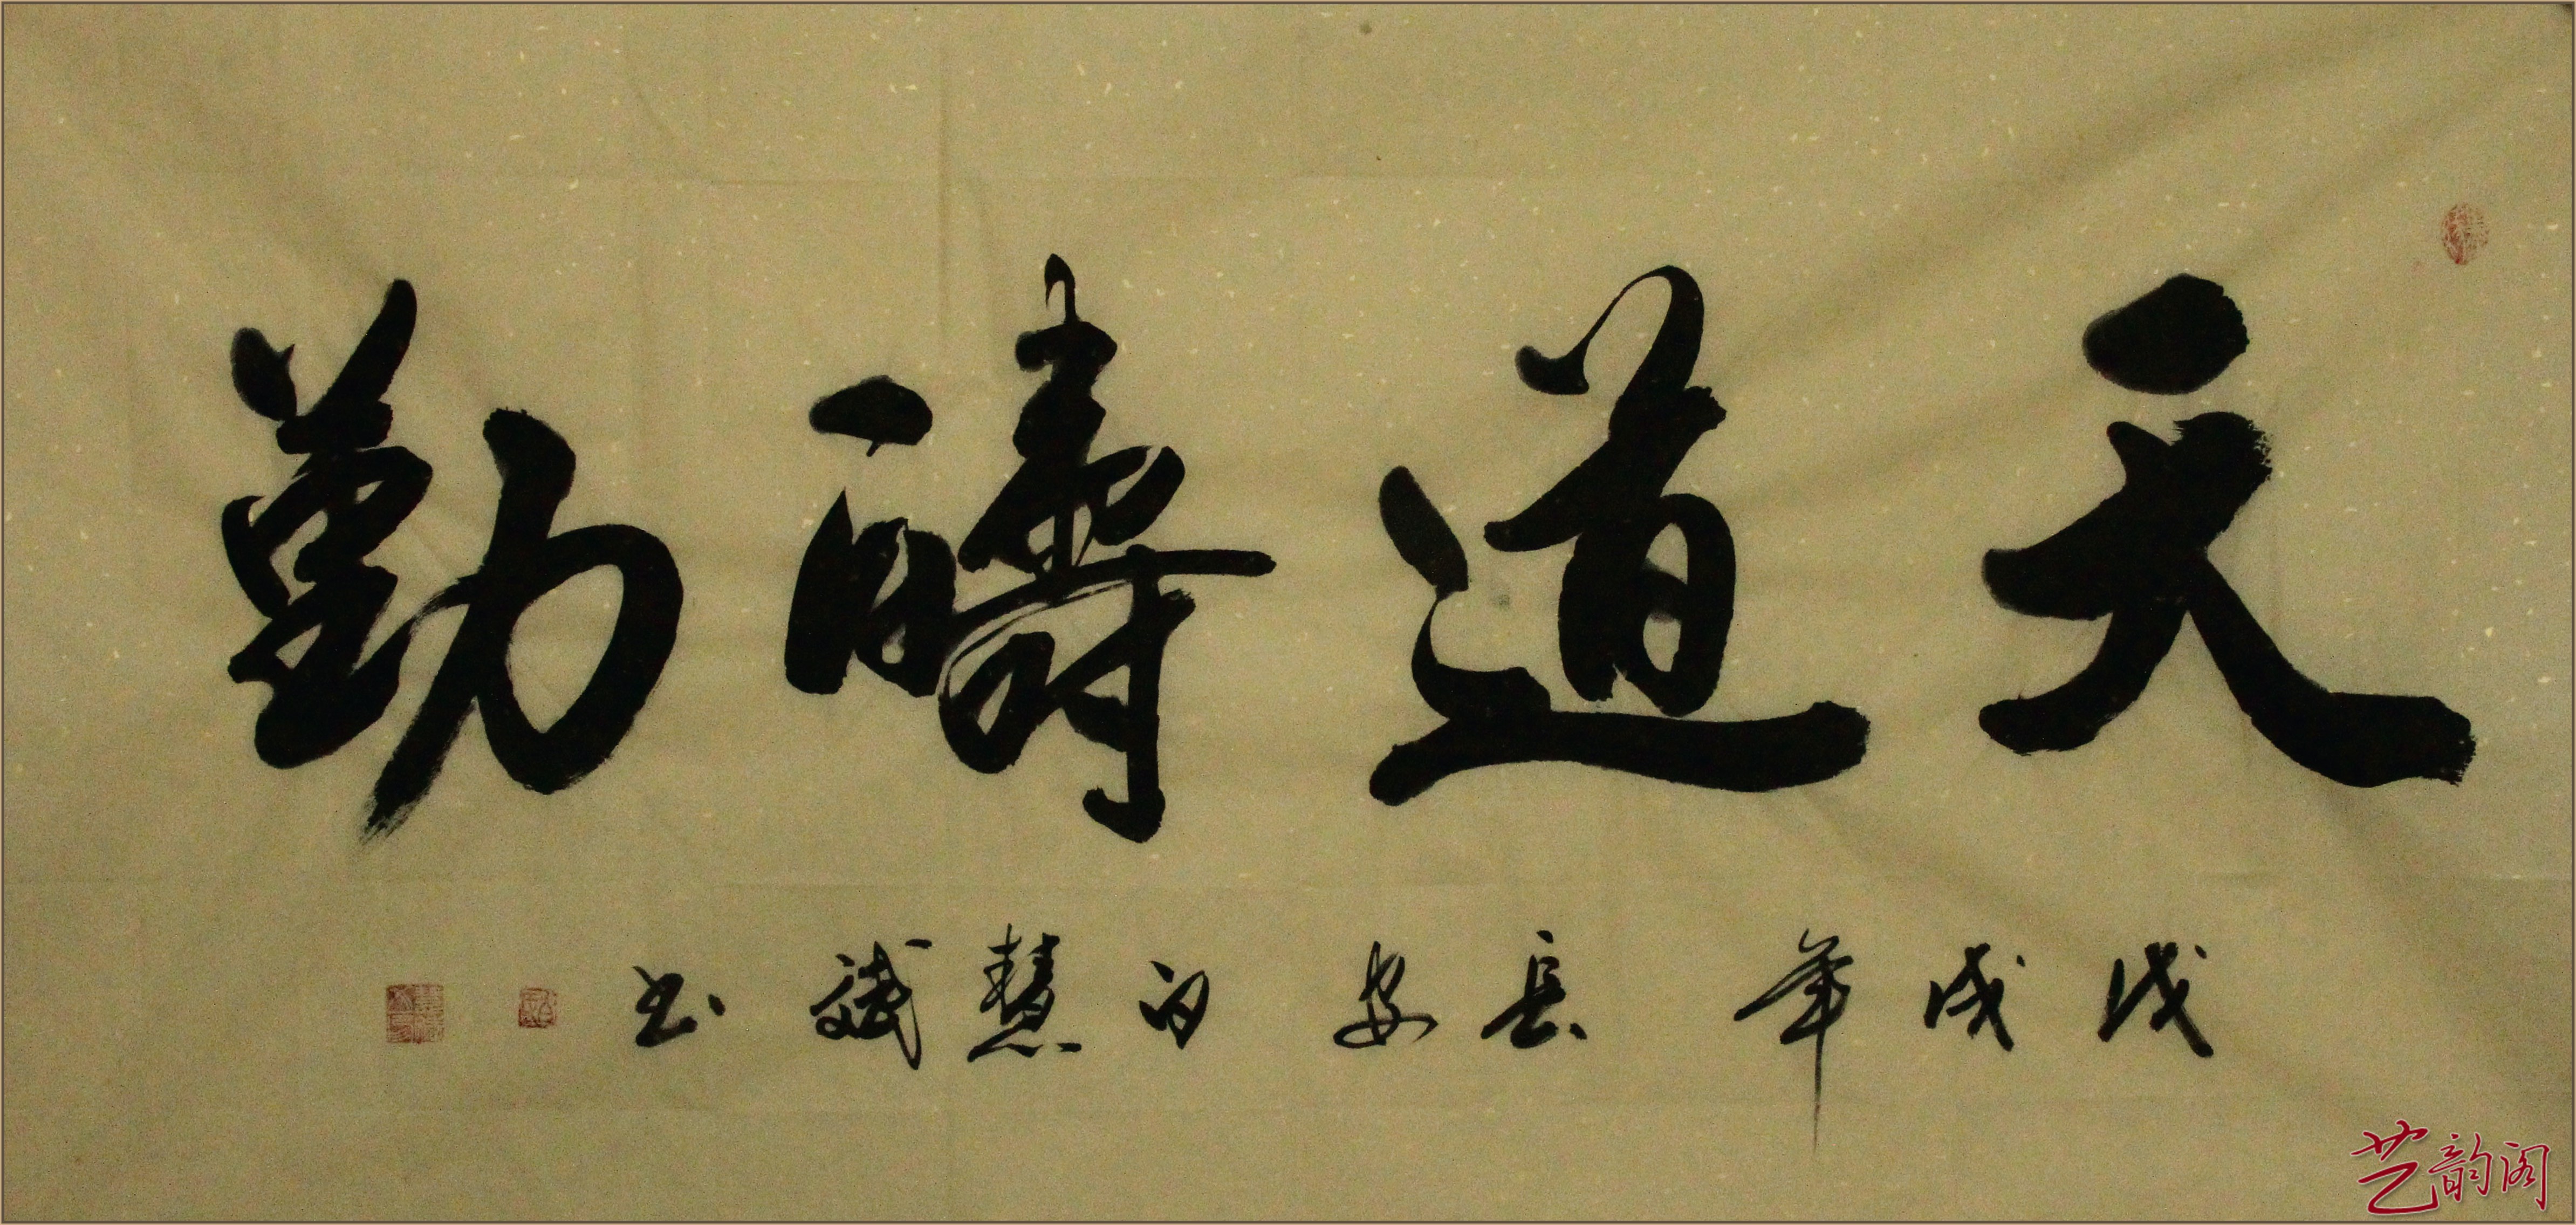 天道酬勤
戊戌年 長安 白慧斌书
艺韵阁